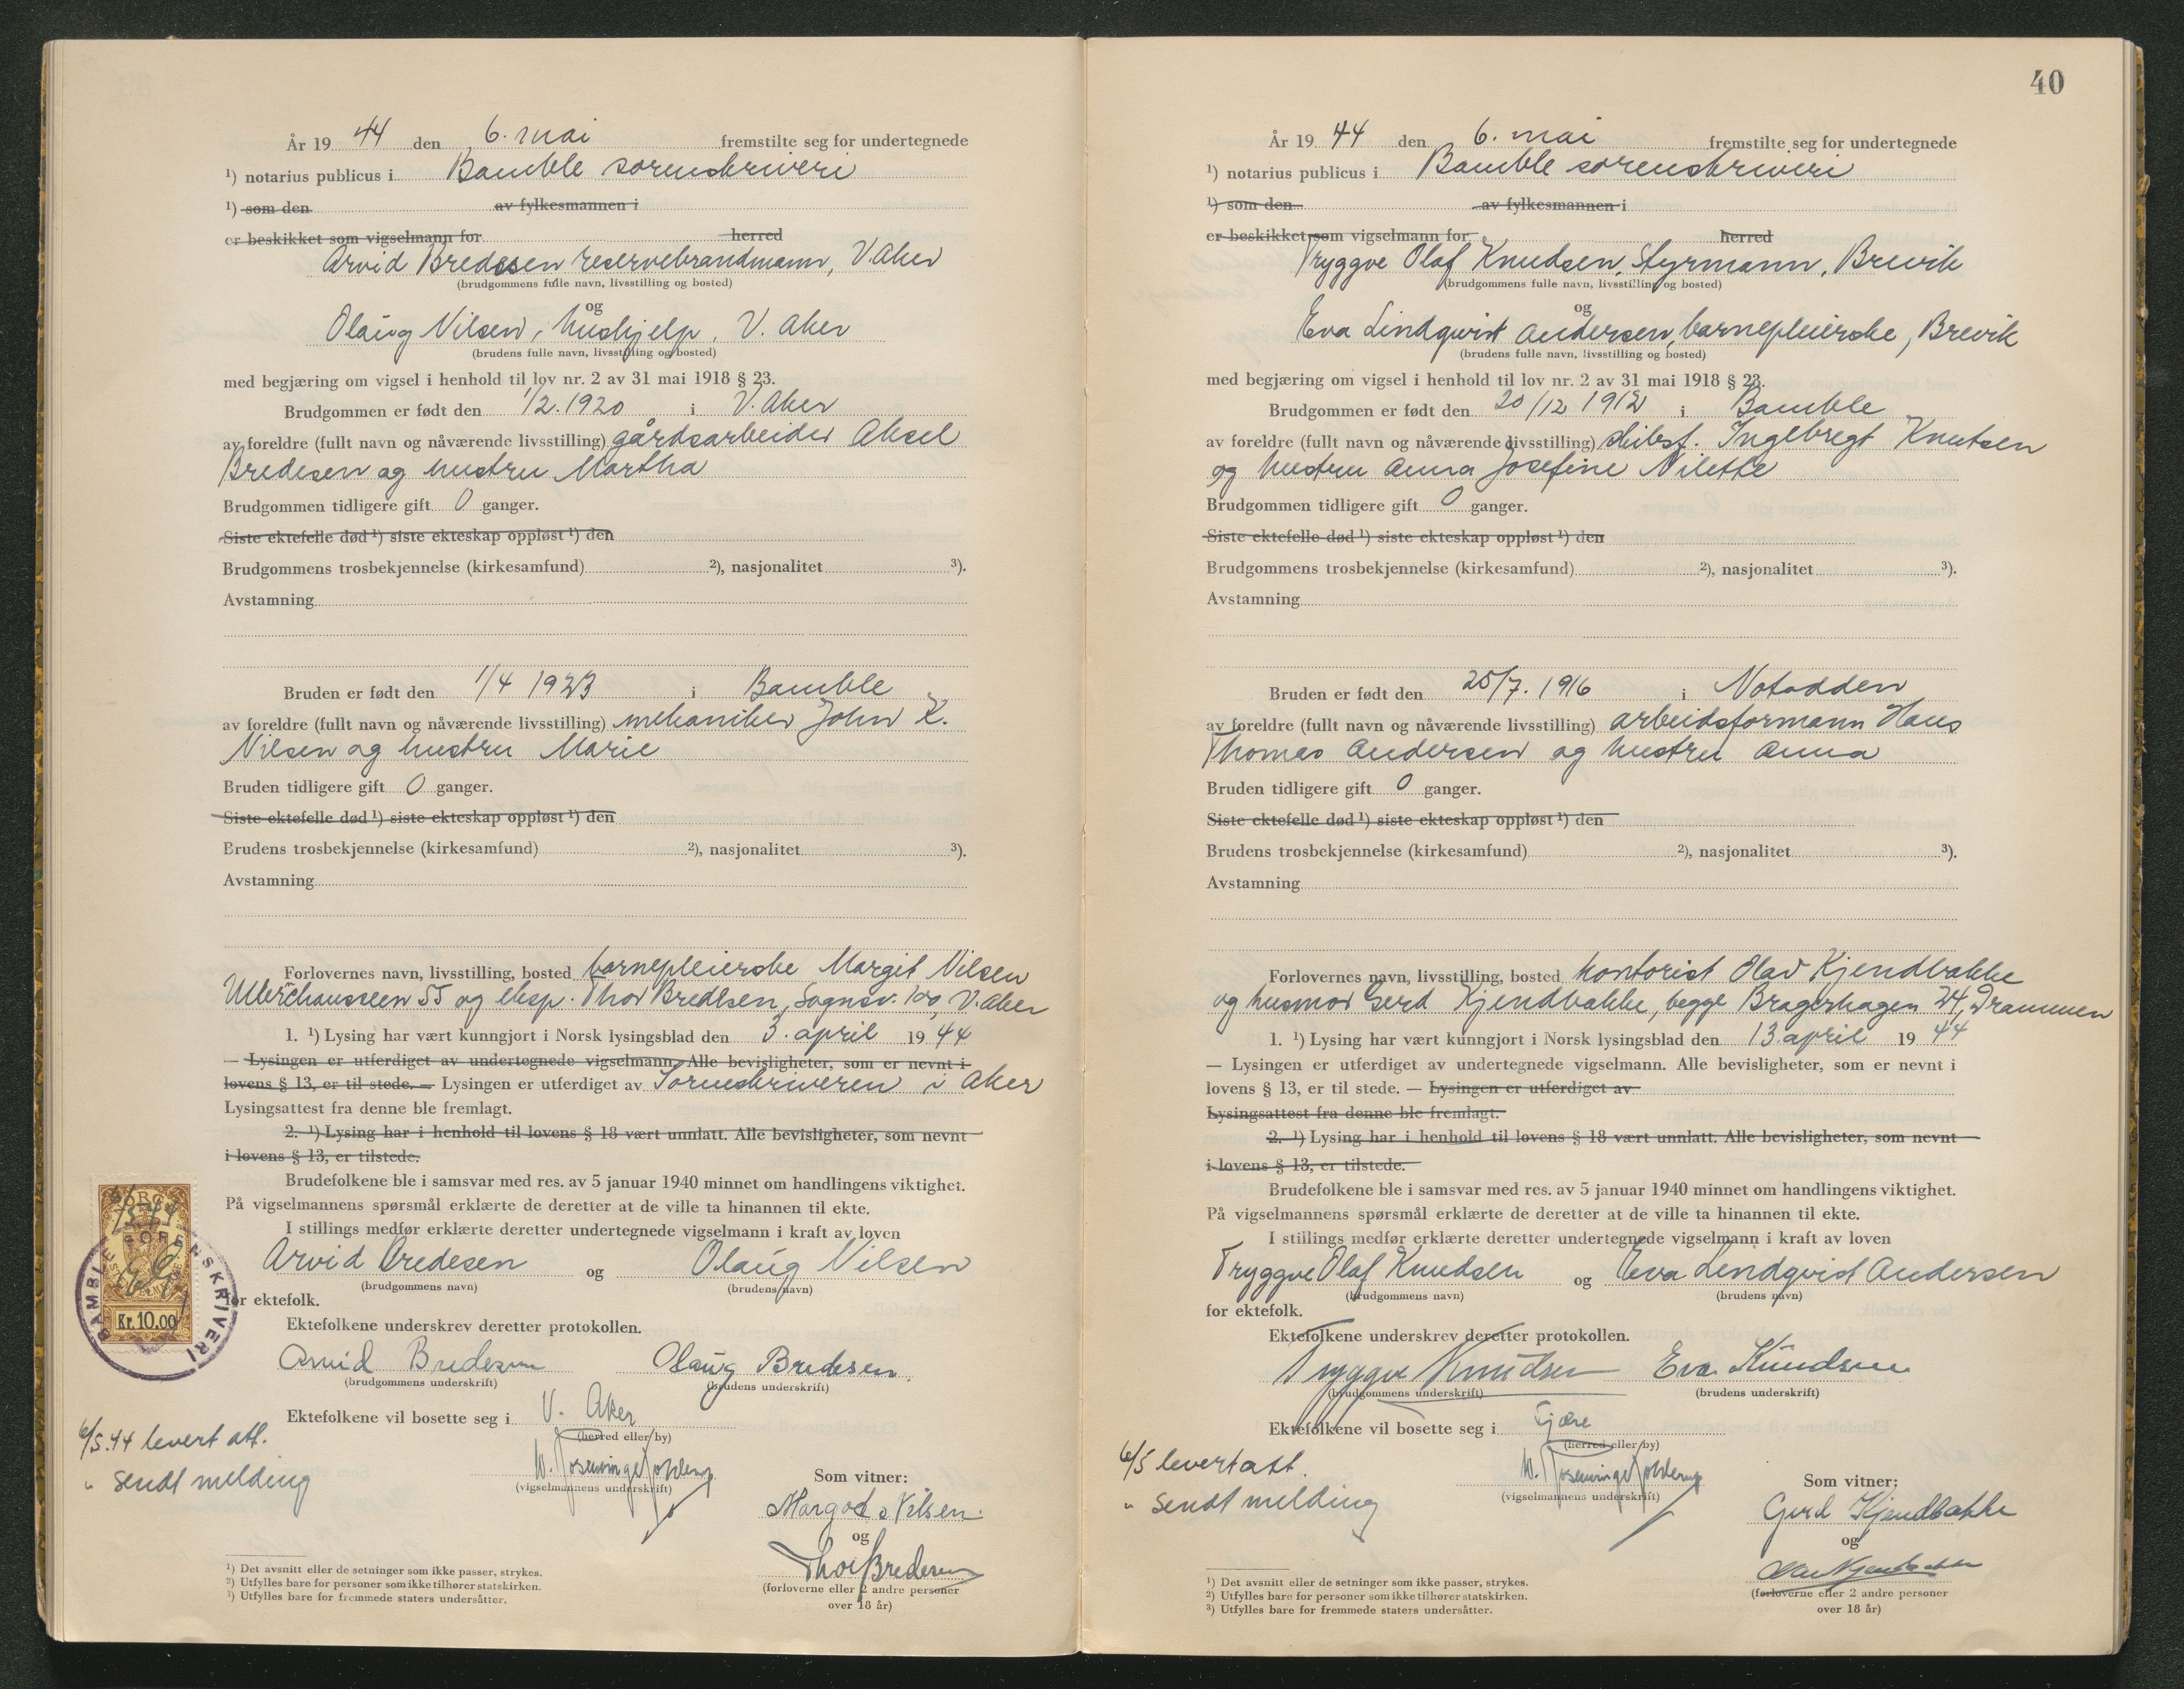 År 19 44 den 6. mai fremstilte seg for undertegnede
¹) notarius publicus i Bamble sorenskriveri
¹) som den av fylkesmannen i
er beskikket som vigselmann for herred
Arvid Bredesen reservebrandmann, V. Aker
(brudgommens fulle navn, livsstilling og bosted)
og
Olaug Nilsen, hushjelp, V. Aker
(brudens fulle navn, livsstilling og bosted)
med begjæring om vigsel i henhold til lov nr. 2 av 31 mai 1918 § 23.
Brudgommen er født den 1/2. 1920 i V. Aker
av foreldre (fullt navn og nåværende livsstilling) gårdsarbeider Aksel
Bredesen og hustru Martha
Brudgommen tidligere gift 0 ganger.
Siste ektefelle død ¹) siste ekteskap oppløst ¹) den
Brudgommens trosbekjennelse (kirkesamfund) ²), nasjonalitet ³).
Avstamning
Bruden er født den 1/4 1923 i Bamble
av foreldre (fullt navn og nåværende livsstilling) mekaniker John K.
Nilsen og hustru Marie
Bruden tidligere gift 0 ganger.
Siste ektefelle død ¹) siste ekteskap oppløst ¹) den
Brudens trosbekjennelse (kirkesamfund) ²), nasjonalitet ³).
Avstamning
Forlovernes navn, livsstilling, bosted barnepleierske Margit Nilsen
55 og eksp. Thor Bredesen, Sognsv. 100, V. Aker
1. ¹) Lysing har vært kunngjort i Norsk lysingsblad den 3. april 19 44
— Lysingen er utferdiget av undertegnede vigselmann. Alle bevisligheter, som er nevnt i
lovens § 13, er til stede. — Lysingen er utferdiget av Sorenskriveren i Aker
Lysingsattest fra denne ble fremlagt.
2. ¹) Lysing har i henhold til lovens § 18 vært unnlatt. Alle bevisligheter, som nevnt
i lovens § 13, er tilstede.
Brudefolkene ble i samsvar med res. av 5 januar 1940 minnet om handlingens viktighet.
På vigselmannens spørsmål erklærte de deretter at de ville ta hinannen til ekte.
I stillings medfør erklærte deretter undertegnede vigselmann i kraft av loven
Arvid Bredesen og Olaug Nilsen
(brudgommens navn) (brudens navn)
for ektefolk.
BAMBLE SORENSKRIVERI
Kr. 10.00
Ektefolkene underskrev deretter protokollen.
Arvid Bredesen Olaug Bredesen
(brudgommens underskrift) (brudens underskrift)
Ektefolkene vil bosette seg i V. Aker
(herred eller by)
6/5.44 levert att.
" sendt melding
(vigselmannens underskrift)
Som vitner:
Nilsen
og
Thor Bredesen
(forloverne eller 2 andre personer
over 18 år)
¹) Det avsnitt eller de setninger som ikke passer, strykes.
²) Utfylles bare for personer som ikke tilhører statskirken.
³) Utfylles bare for fremmede staters undersåtter.
40
År 19 44 den 6. mai fremstilte seg for undertegnede
¹) notarius publicus i Bamble sorenskriveri
¹) som den av fylkesmannen i
er beskikket som vigselmann for herred
Tryggve Olaf Knudsen, Styrmann, Brevik
(brudgommens fulle navn, livsstilling og bosted)
og
Eva Lindqvist Andersen, barnepleierske, Brevik
(brudens fulle navn, livsstilling og bosted)
med begjæring om vigsel i henhold til lov nr. 2 av 31 mai 1918 § 23.
Brudgommen er født den 20/12 1912 i Bamble
av foreldre (fullt navn og nåværende livsstilling) skibsf. Ingebregt Knutsen
og hustru Anna Josefine Nilette
Brudgommen tidligere gift 0 ganger.
Siste ektefelle død ¹) siste ekteskap oppløst ¹) den
Brudgommens trosbekjennelse (kirkesamfund) ²), nasjonalitet ³).
Avstamning
Bruden er født den 25/7. 1916 i Notodden
av foreldre (fullt navn og nåværende livsstilling) arbeidsformann Hans
Thomas Andersen og hustru Anna
Bruden tidligere gift 0 ganger.
Siste ektefelle død ¹) siste ekteskap oppløst ¹) den
Brudens trosbekjennelse (kirkesamfund) ²), nasjonalitet ³).
Avstamning
Forlovernes navn, livsstilling, bosted kontorist Olav Kjendbakke
og husmor Gerd Kjendbakke, begge Bragerhagen 24, Drammen
1. ¹) Lysing har vært kunngjort i Norsk lysingsblad den 13. april 19 44
— Lysingen er utferdiget av undertegnede vigselmann. Alle bevisligheter, som er nevnt i
lovens § 13, er til stede. — Lysingen er utferdiget av
Lysingsattest fra denne ble fremlagt.
2. ¹) Lysing har i henhold til lovens § 18 vært unnlatt. Alle bevisligheter, som nevnt
i lovens § 13, er tilstede.
Brudefolkene ble i samsvar med res. av 5 januar 1940 minnet om handlingens viktighet.
På vigselmannens spørsmål erklærte de deretter at de ville ta hinannen til ekte.
I stillings medfør erklærte deretter undertegnede vigselmann i kraft av loven
Tryggve Olaf Knudsen og Eva Lindqvist Andersen
(brudgommens navn) (brudens navn)
for ektefolk.
Ektefolkene underskrev deretter protokollen.
Tryggve Knudsen Eva Knudsen
(brudgommens underskrift) (brudens underskrift)
Ektefolkene vil bosette seg i Fjære
(herred eller by)
6/5 levert att.
" sendt melding
(vigselmannens underskrift)
Som vitner:
Gerd Kjendbakke
og
(forloverne eller 2 andre personer
over 18 år)
¹) Det avsnitt eller de setninger som ikke passer, strykes.
²) Utfylles bare for personer som ikke tilhører statskirken.
³) Utfylles bare for fremmede staters undersåtter.